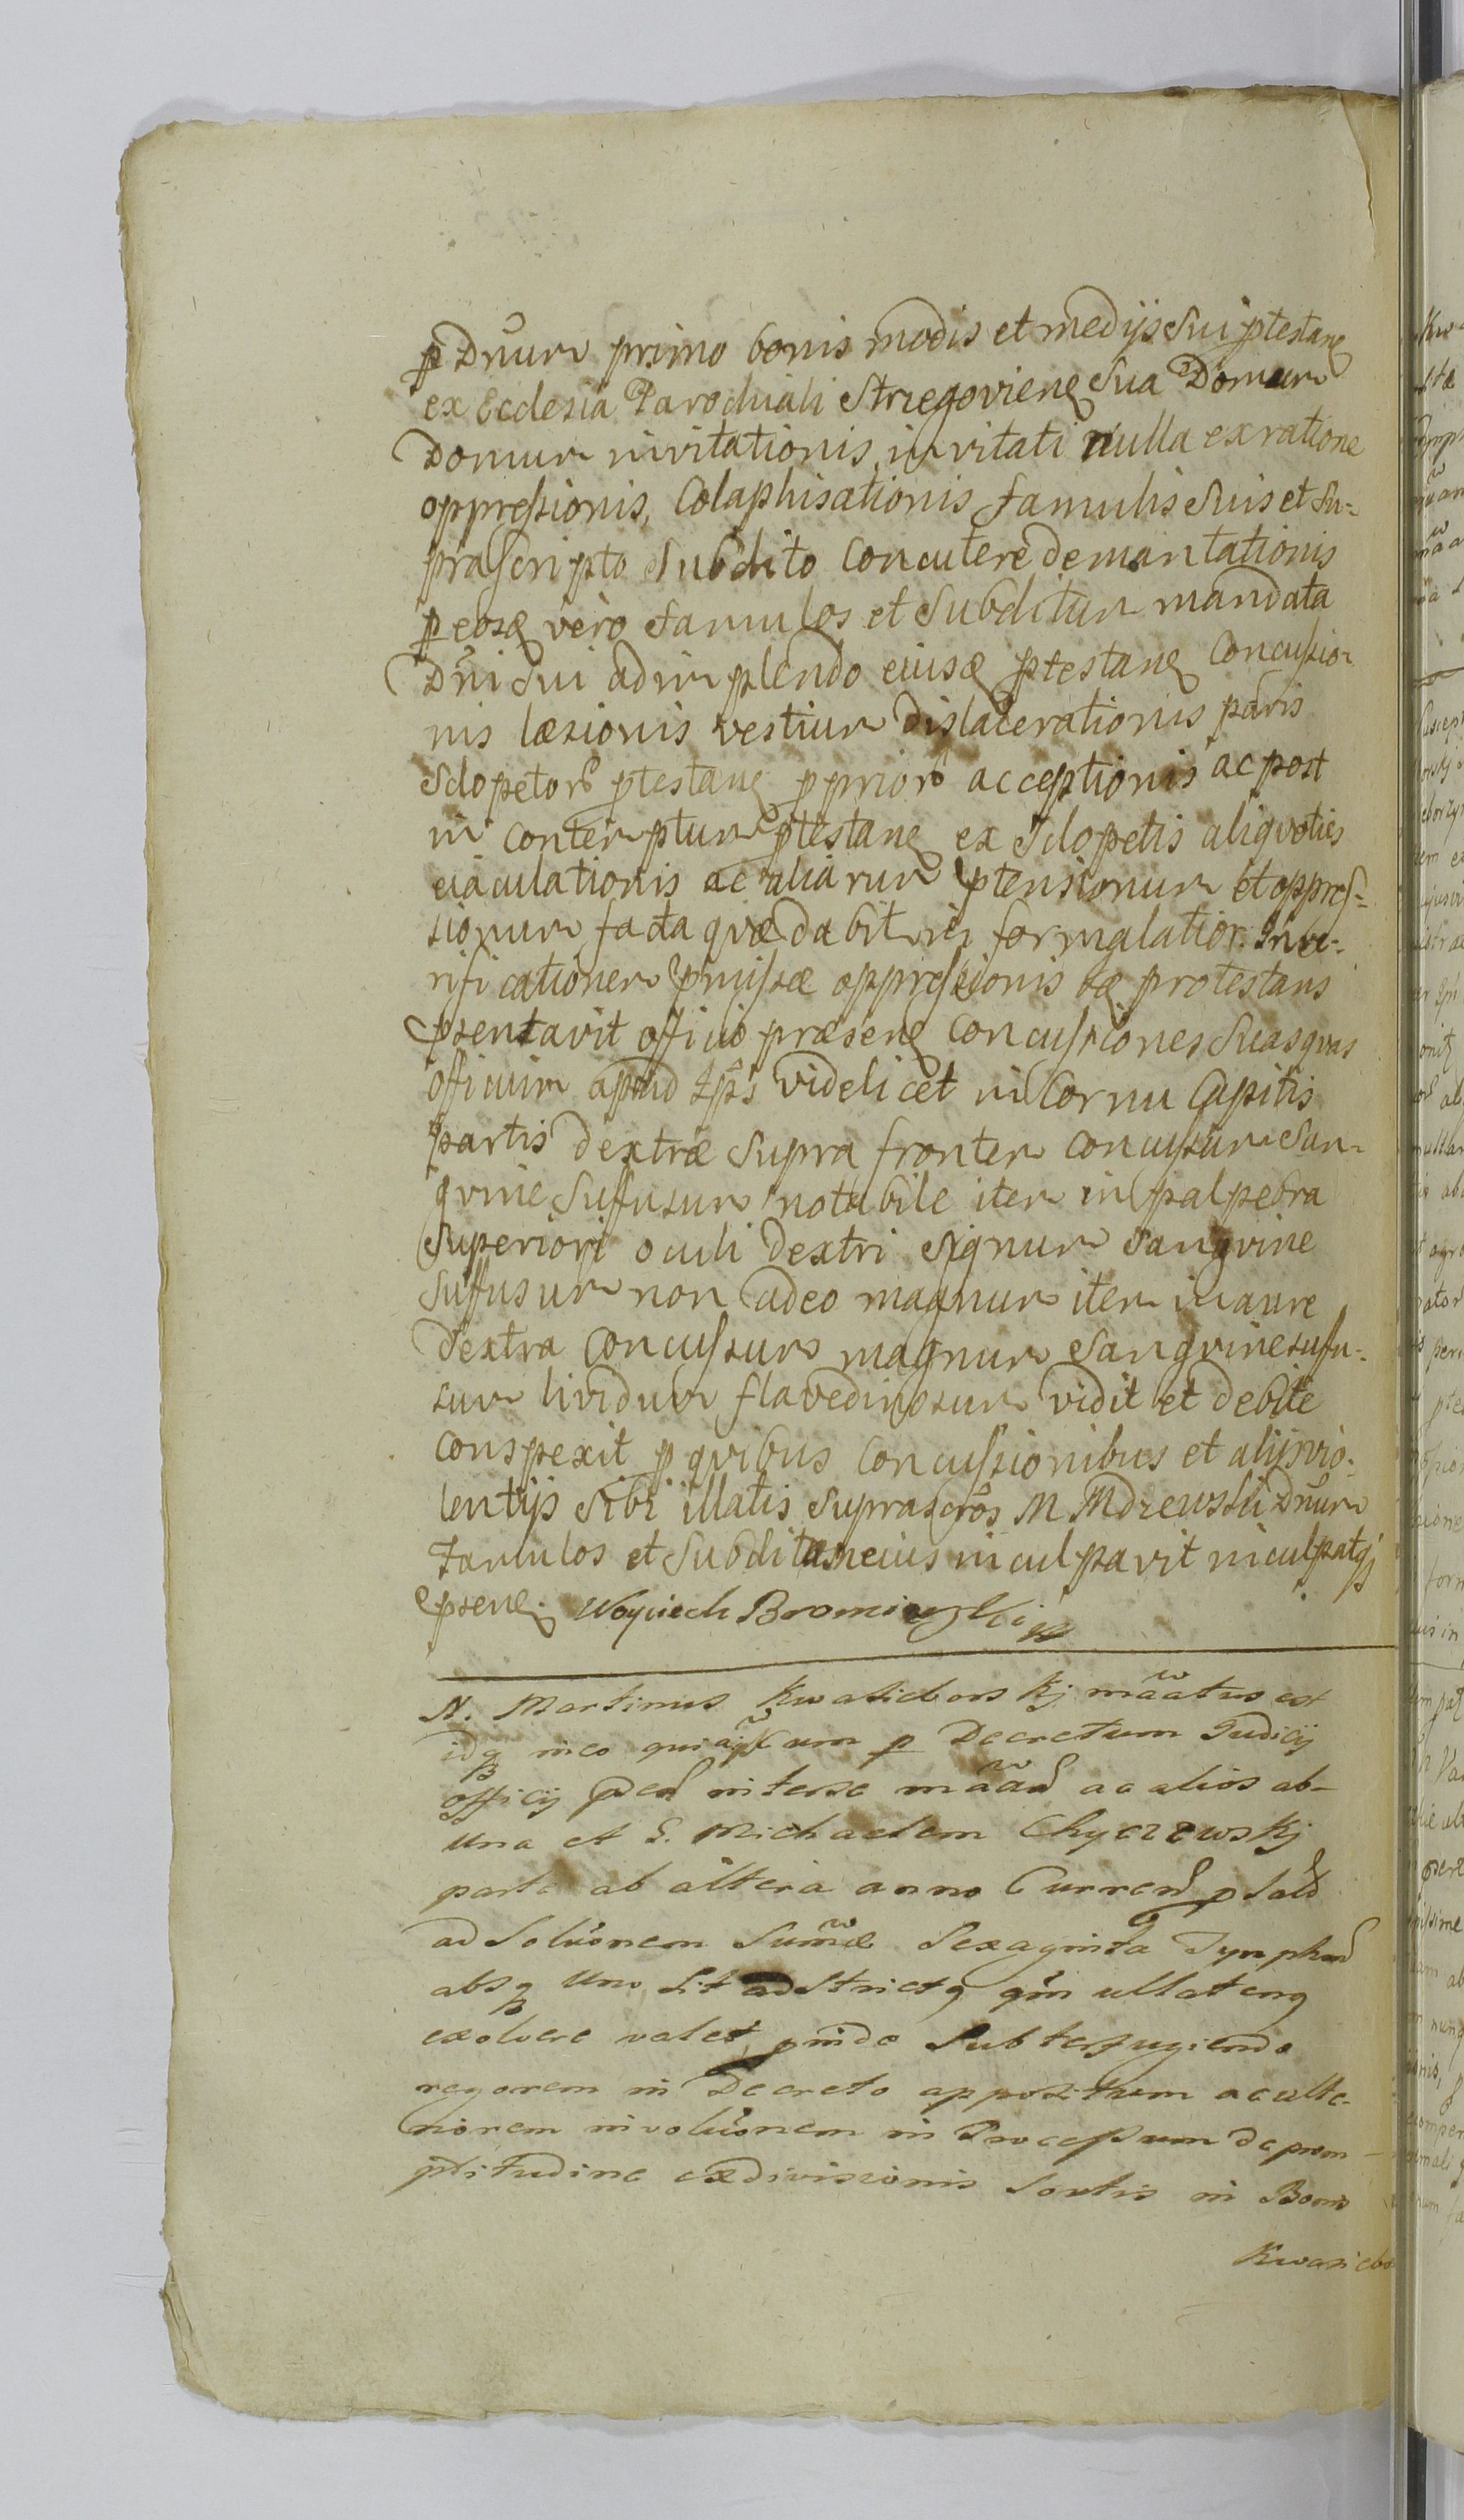 p Dnum primo bonis modis et medijs sui ptestang
ex Ecclesia Parochiali Strzegovieng sua Domum
Domum invitationis invitati nulla ex ratione
oppressionis, Colaphisationis famulis suis et su-
prascripto subdito concutere demantationis
p eosq vero famulos et subditum mandata
Dni sui adimplendo eiusq ptestang concussio-
nis læsionis vestium dislacerationis paris
sclopetor ptestang pprior acceptionis ac post
in contemptum ptestang ex sclopetis aliqvoties
eiaculationis ac aliarum ptensionum et oppres-
sionum facta qvæ dabitur in formalatior. In ve-
rificationem pmissæ oppressionis idq protestans
psentavit officio præseng concussiones suas qvas
officium apud Ips videlicet in Cornu Capitis
partis dextræ supra frontem concussum san-
gvine suffusum notabile item in palpebra
superiori oculi dextri signum sangvine
suffusum non adeo magnum item in aure
dextra concussum magnum sangvine suffu-
sum lividum flavedinosum vidit et debite
conspexit p qvibus concussionibus et alijs vio-
lentijs sibi illatis suprascros M Mdzewski Dnum
famulos et subditum eius inculpavit inculpatq
pseng. Woyciech Bromierzki mp
N. Martinus Kwasieborskj maatus est
idq in eo quia cum p Decretum Judicij
officij psen inter se maan ac alios ab-
una et G. Michaelem Chyczewskj
parte ab altera anno Curren p lat
ad Solucionem Summæ Sexaginta Tynphon
absq Uno sit adstrictq qm ullateng
exolvere valet, pinde Subterfugiendo
regorem in Decreto appositum ac ulte-
riorem involucionem in Processum de prom-
ptitudine exdivisionis Sortis in Bonis
Kwasiebo